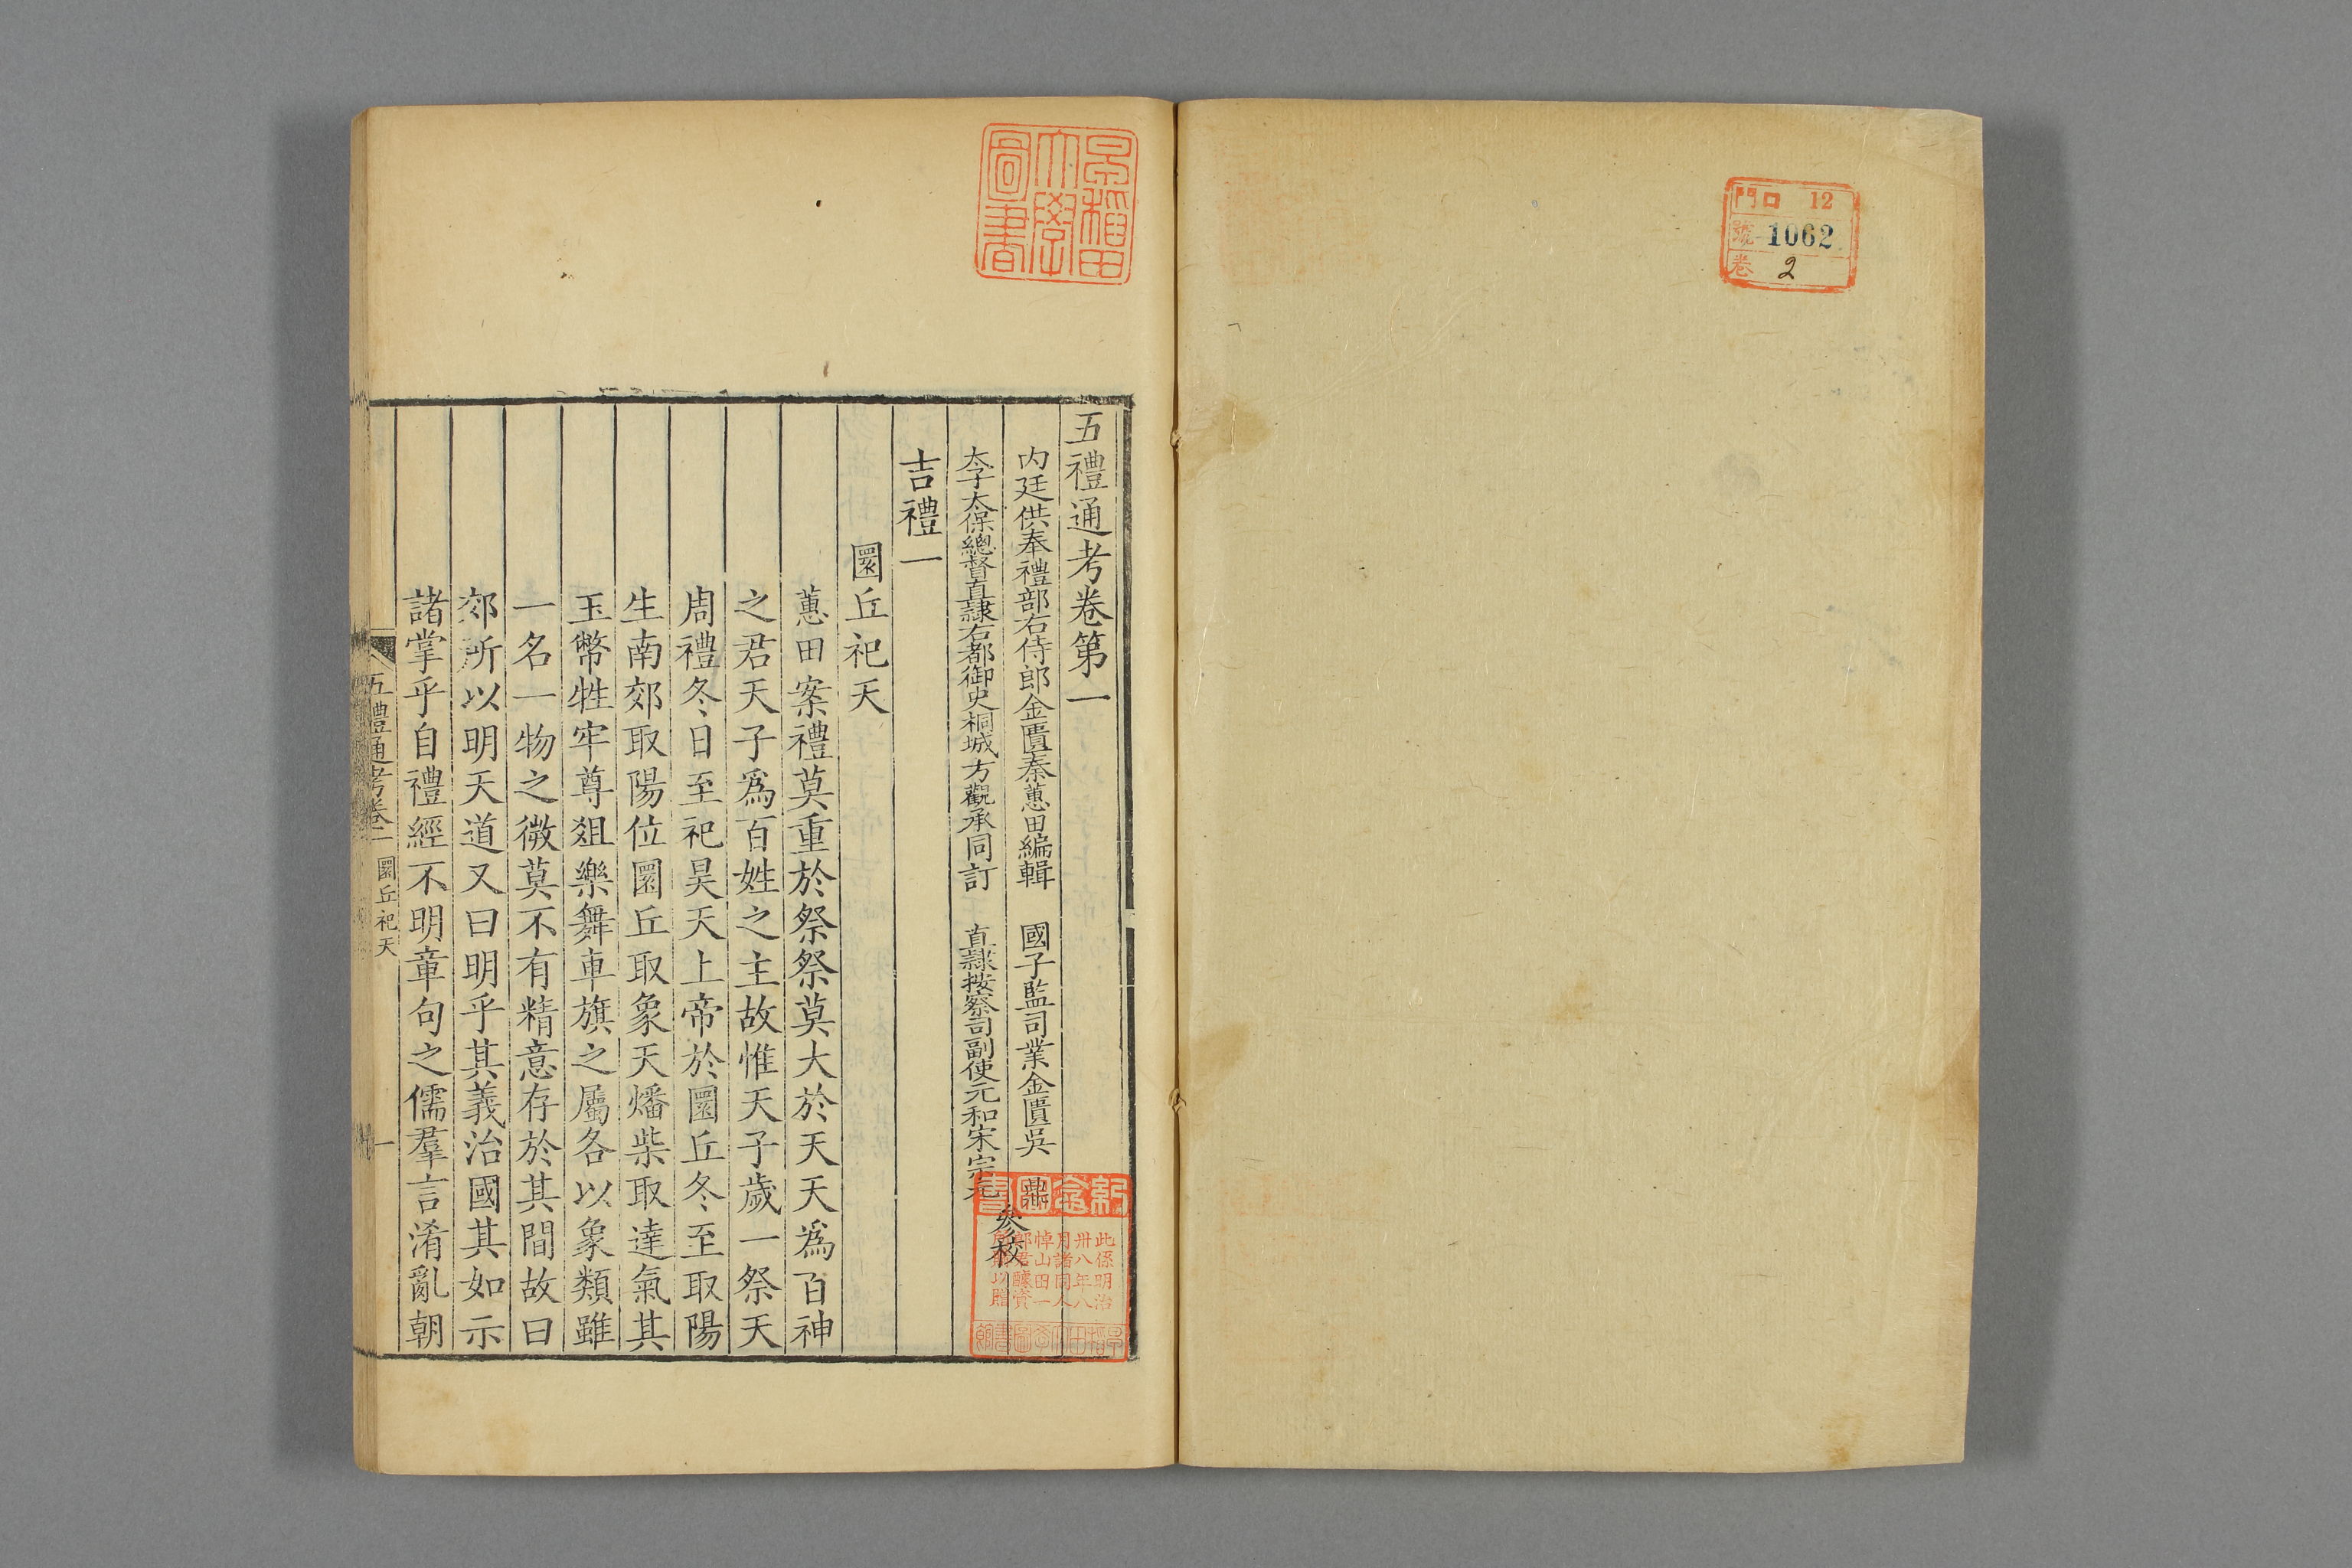 門 口 12
號 1062
卷 2
早稻田
大學
圖書
五禮通考卷第一
内廷供奉禮部右侍郎金匱秦蕙田編輯 國子監司業金匱吳鼎
太子太保總督直隷右都御史桐城方觀承同訂 直隷按察司副使元和宋宗元
參校
吉禮一
圜丘祀天
蕙田案禮莫重於祭祭莫大於天天爲百神
之君天子爲百姓之主故惟天子歲一祭天
周禮冬日至祀昊天上帝於圜丘冬至取陽
生南郊取陽位圜丘取象天燔柴取達氣其
玉幣牲牢尊俎樂舞車旗之屬各以象類雖
一名一物之微莫不有精意存於其間故曰
郊所以明天道又曰明乎其義治國其如示
諸掌乎自禮經不明章句之儒羣言淆亂朝
五禮通考卷一 圜丘祀天 一
紀念圖書
此係明治
卅八年八
月諸同人
悼山田一
郎君醵資
以贈